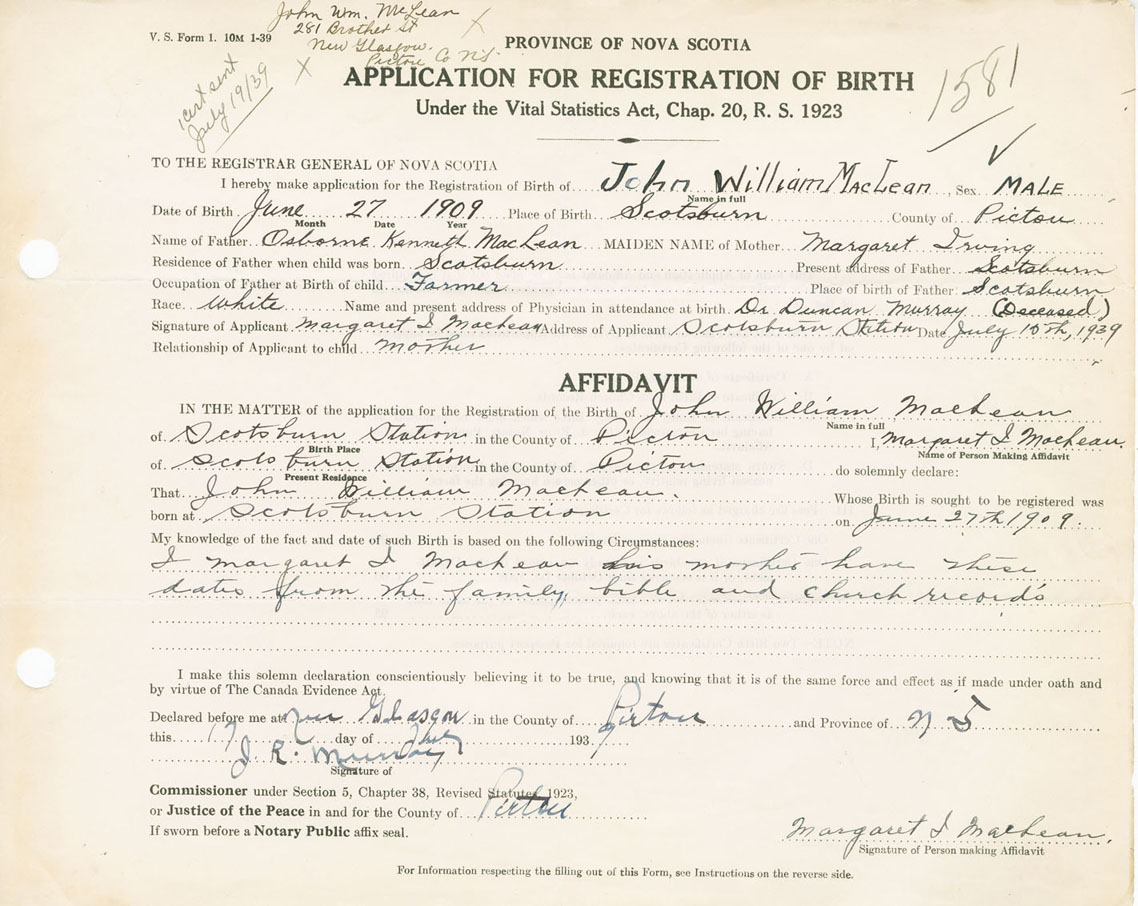 V. S. Form 1. 10M 1-39
John Wm. McLean
281 Brother St
New Glasgow.
Pictou Co N.S.
cert sent
July 19/39
1581
PROVINCE OF NOVA SCOTIA
APPLICATION FOR REGISTRATION OF BIRTH
Under the Vital Statistics Act, Chap. 20, R. S. 1923
TO THE REGISTRAR GENERAL OF NOVA SCOTIA
I hereby make application for the Registration of Birth of John William MacLean, Sex MALE
Name in full
Date of Birth June 27 1909 Place of Birth Scotsburn County of Pictou
Month Date Year
Name of Father Osborne Kenneth MacLean MAIDEN NAME of Mother Margaret Irving
Residence of Father when child was born Scotsburn Present address of Father Scotsburn
Occupation of Father at Birth of child Farmer Place of birth of Father Scotsburn
Race White Name and present address of Physician in attendance at birth Dr Duncan Murray (Deceased)
Signature of Applicant Margaret I MacLean Address of Applicant Scotsburn Station Date July 15th, 1939
Relationship of Applicant to child mother
AFFIDAVIT
IN THE MATTER of the application for the Registration of the Birth of John William MacLean
Name in full
of Scotsburn Station in the County of Pictou I, Margaret I MacLean.
Birth Place Name of Person Making Affidavit
of Scotsburn Station in the County of Pictou do solemnly declare:
Present Residence
That John William MacLean. Whose Birth is sought to be registered was
born at Scotsburn Station on June 27th 1909.
My knowledge of the fact and date of such Birth is based on the following Circumstances:
I Margaret I MacLean his mother have these
dates from the family bible and church records
I make this solemn declaration conscientiously believing it to be true, and knowing that it is of the same force and effect as if made under oath and
by virtue of The Canada Evidence Act.
Declared before me at New Glasgow in the County of Pictou and Province of N S
this 17 day of July 1939
J. R. Murray
Signature of
Commissioner under Section 5, Chapter 38, Revised Statutes 1923,
or Justice of the Peace in and for the County of Pictou
If sworn before a Notary Public affix seal.
Margaret I MacLean.
Signature of Person making Affidavit
For Information respecting the filling out of this Form, see Instructions on the reverse side.